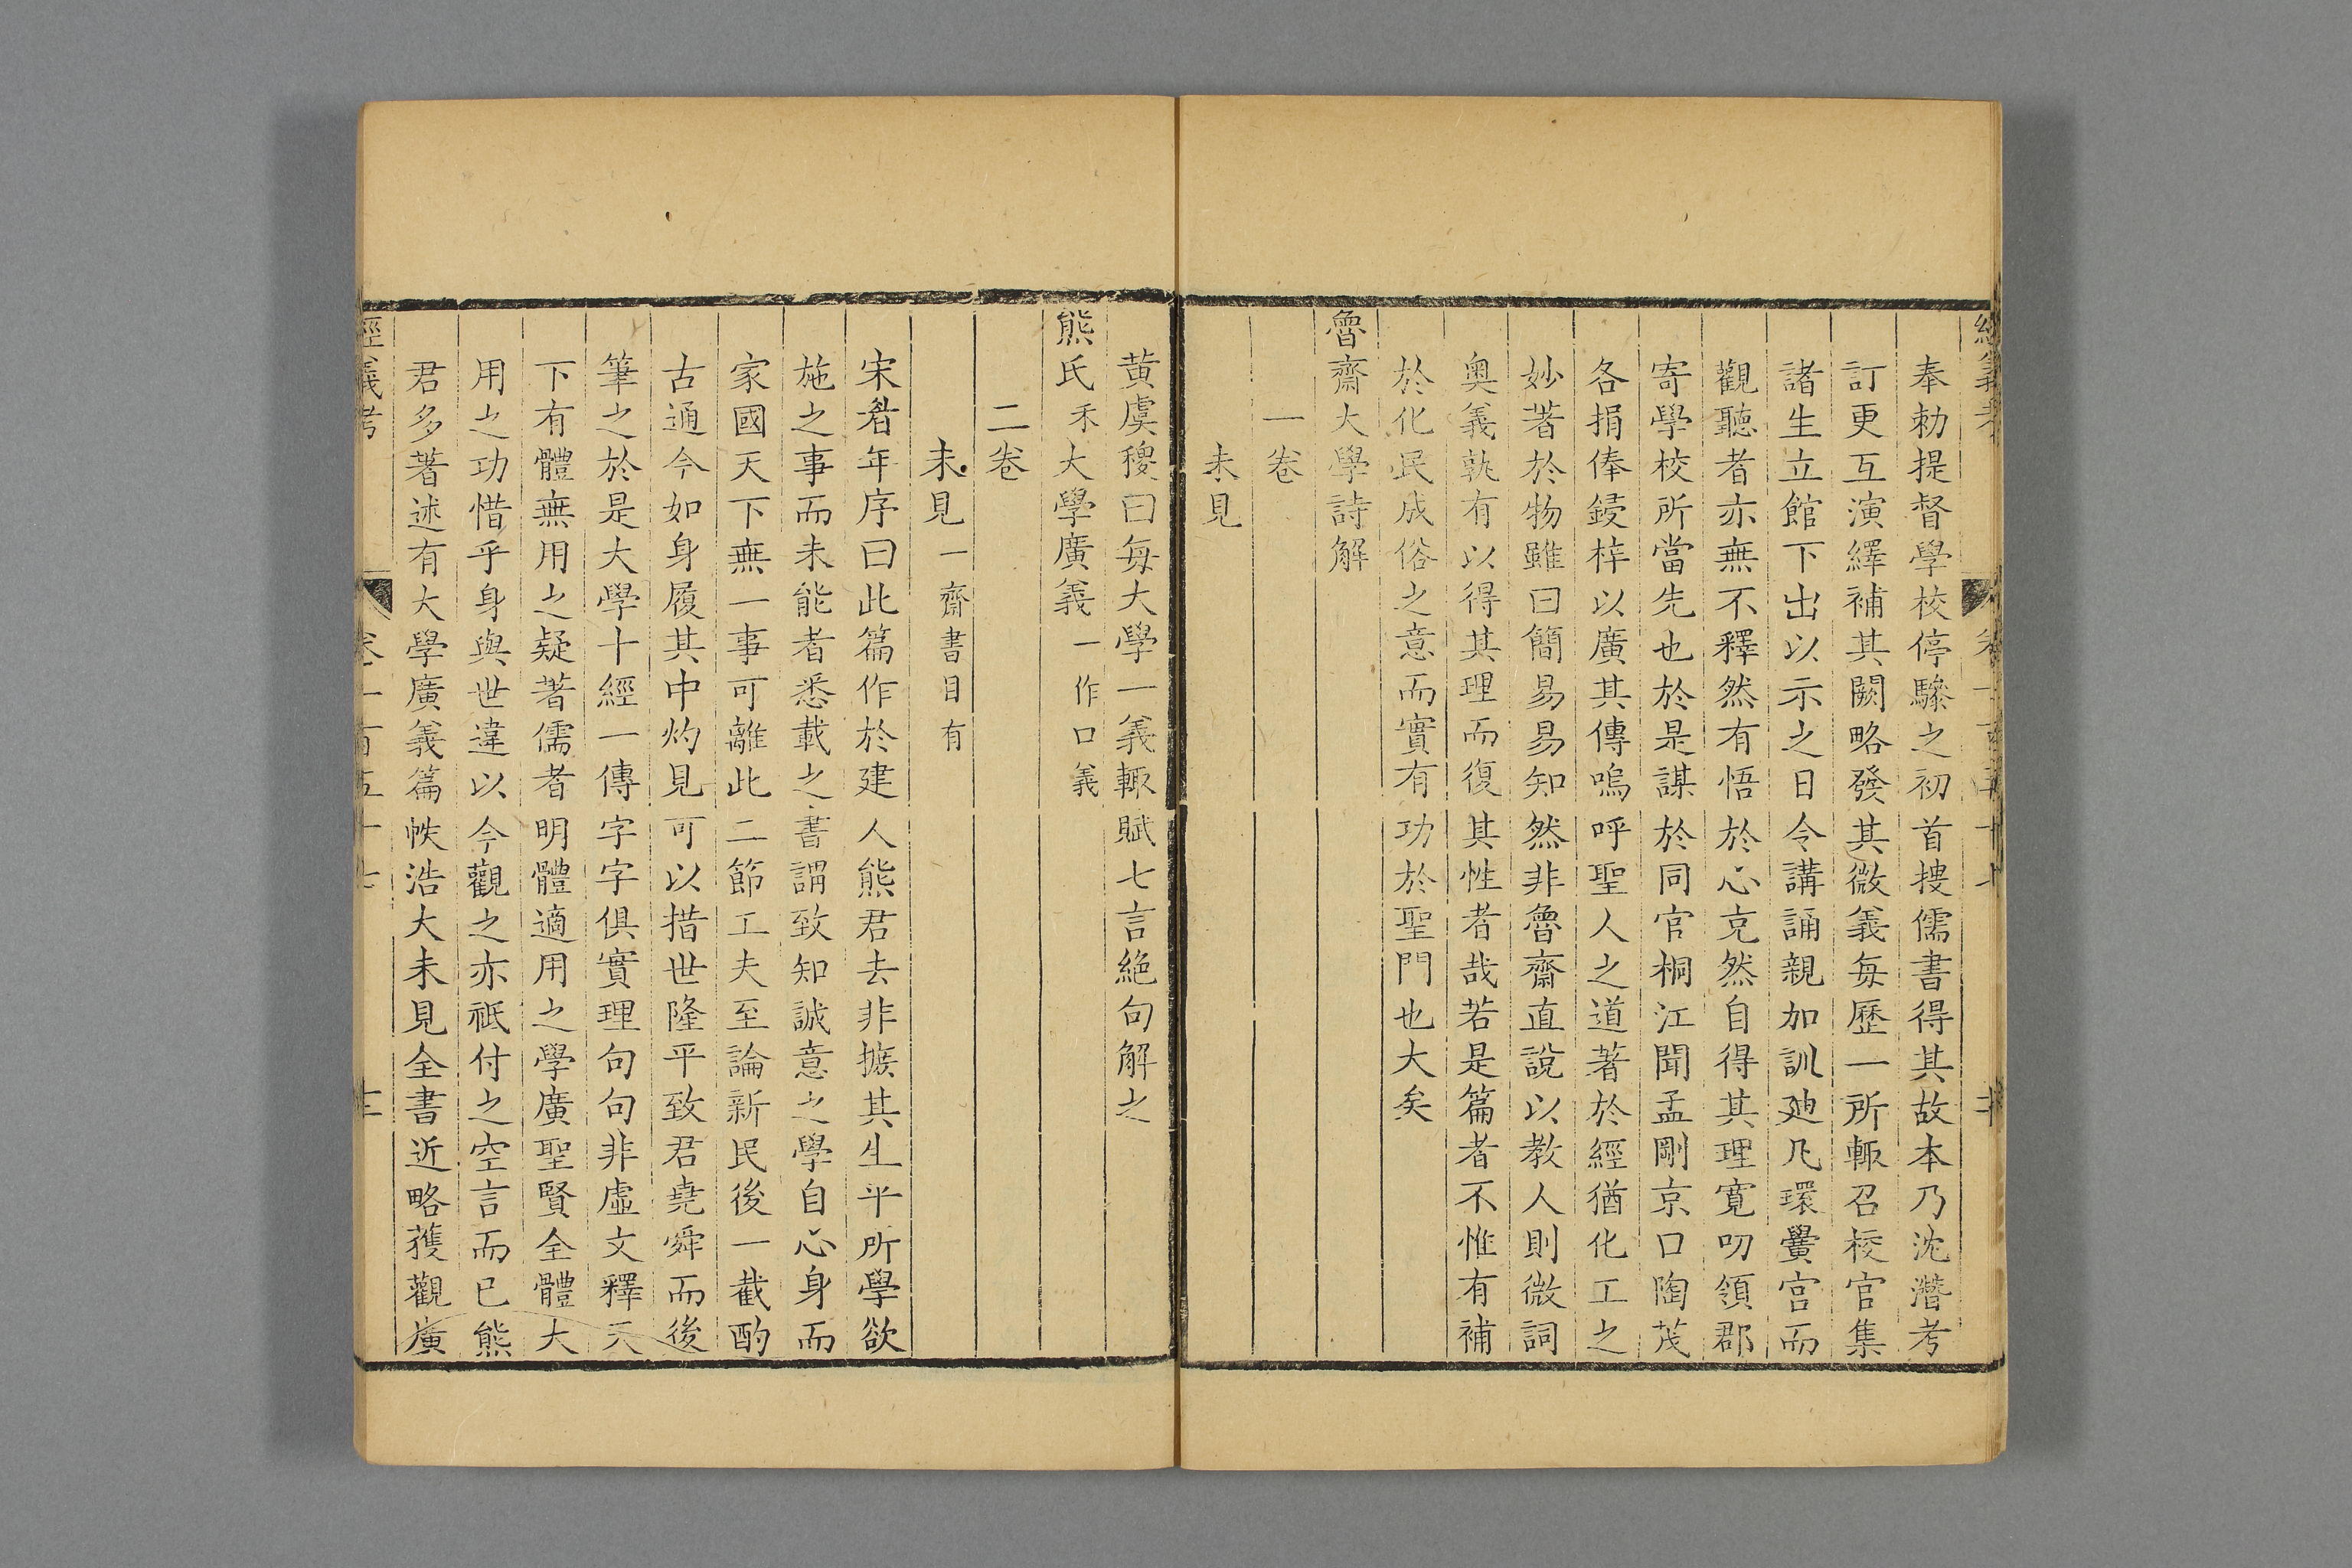 經義考 卷一百五十七
奉勅提督學校停驂之初首摟儒書得其故本乃沈潛考
訂更互演繹補其闕略發其微義每歷一所輒召校官集
諸生立館下出以示之日令講誦親加訓廸凡環黌宮而
觀聽者亦無不釋然有悟於心克然自得其理寬叨領郡
寄學校所當先也於是謀於同官桐江聞孟剛京口陶茂
各捐俸鋟梓以廣其傳嗚呼聖人之道著於經猶化工之
妙著於物雖曰簡易易知然非魯齋直說以教人則微詞
奧義孰有以得其理而復其性者哉若是篇者不惟有補
於化民成俗之意而實有功於聖門也大矣
魯齋大學詩解
一卷
未見
黃虞稷曰每大學一義輒賦七言絕句解之
熊氏禾大學廣義一作口義
二卷
未見一齋書目有
宋耆年序曰此篇作於建人熊君去非摭其生平所學欲
施之事而未能者悉載之書謂致知誠意之學自心身而
家國天下無一事可離此二節工夫至論新民後一截酌
古通今如身履其中灼見可以措世隆平致君堯舜而後
筆之於是大學十經一傳字字俱實理句句非虛文釋天
下有體無用之疑著儒者明體適用之學廣聖賢全體大
用之功惜乎身與世違以今觀之亦祇付之空言而已熊
君多著述有大學廣義篇帙浩大未見全書近略獲觀廣
經義考 卷一百五十七